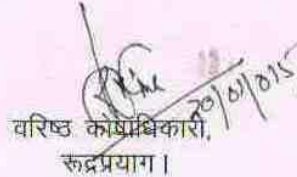 20/01/015
वरिष्ठ कोषाधिकारी,
रूद्रप्रयाग।